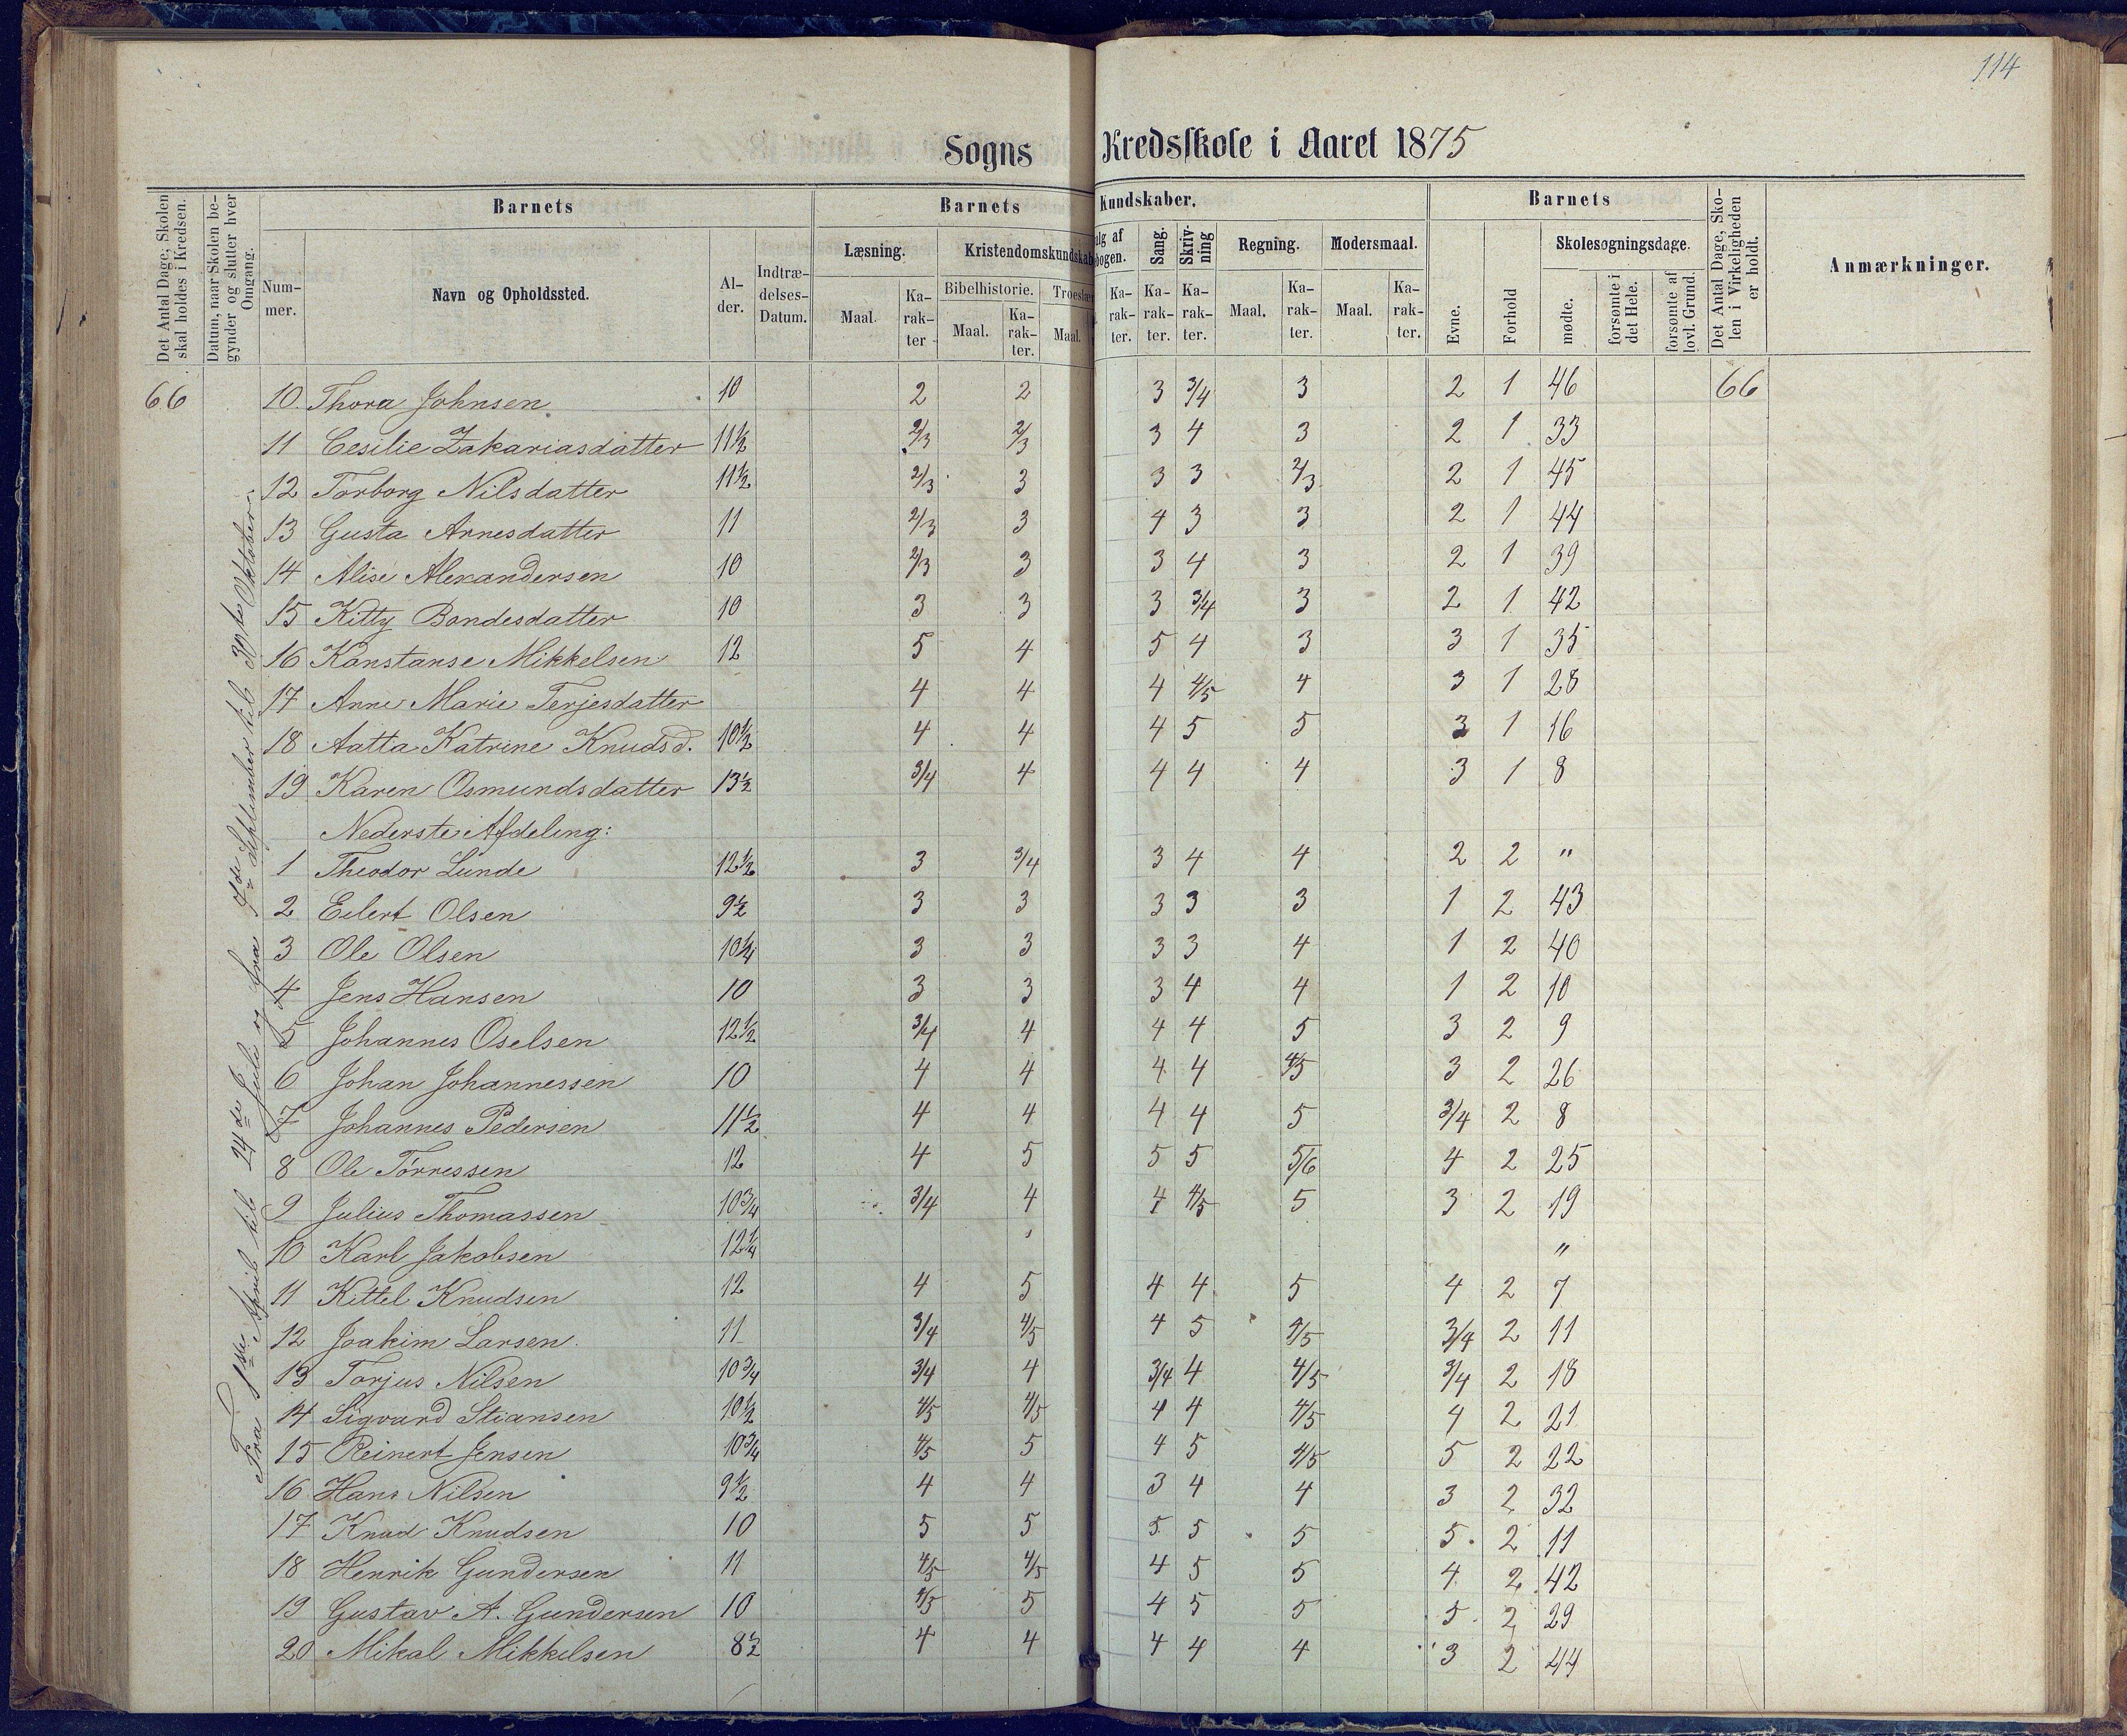 114
Sogns Kredsskole i Aaret 1875
Det Antal Dage, Skolen skal holdes i Kredsen.
Datum, naar Skolen begynder og slutter hver Omgang.
Barnets
Nummer.
Navn og Opholdssted.
Alder.
Indtrædelses-Datum.
Barnets Kundskaber.
Læsning.
Maal.
Karakter
Kristendomskundskab
Bibelhistorie.
Maal.
Karakter.
Troeslær
Maal.
alg af
bogen.
Karakter.
Sang.
Karakter.
Skrivning
Karakter.
Regning.
Maal.
Karakter.
Modersmaal.
Maal.
Karakter.
Barnets
Evne.
Forhold
Skolesøgningsdage.
mødte.
forsømte i det Hele.
forsømte af lovl. Grund.
Det Antal Dage, Skolen i Virkeligheden er holdt.
Anmærkninger.
Fra 1ste April til 24de Juli og fra 7de September til 30te Oktober.
66 10 Thora Johnsen 10 2 2 3 3/4 3 2 1 46 66
11 Cesilie Zakariasdatter 11½ 2/3 2/3 3 4 3 2 1 33
12 Torborg Nilsdatter 11½ 2/3 3 3 3 2/3 2 1 45
13 Gusta Arnesdatter 11 2/3 3 4 3 3 2 1 44
14 Alise Alexandersen 10 2/3 3 3 4 3 2 1 39
15 Kitty Bondesdatter 10 3 3 3 3/4 3 2 1 42
16 Konstanse Mikkelsen 12 5 4 5 4 3 3 1 35
17 Anne Marie Terjesdatter 4 4 4 4/5 4 3 1 28
18 Aatta Katrine Knudsd. 10½ 4 4 4 5 5 3 1 16
19 Karen Osmundsdatter 13½ 3/4 4 4 4 4 3 1 8
Nederste Afdeling:
1 Theodor Lunde 12½ 3 3/4 3 4 4 2 2 "
2 Eilert Olsen 9½ 3 3 3 3 3 1 2 43
3 Ole Olsen 10¼ 3 3 3 3 4 1 2 40
4 Jens Hansen 10 3 3 3 4 4 1 2 10
5 Johannes Oselsen 12½ 3/4 4 4 4 5 3 2 9
6 Johan Johannessen 10 4 4 4 4 4/5 3 2 26
7 Johannes Pedersen 11½ 4 4 4 4 5 3/4 2 8
8 Ole Tørressen 12 4 5 5 5 5/6 4 2 25
9 Julius Thomassen 10¾ 3/4 4 4 4/5 5 3 2 19
10 Karl Jakobsen 12¼ "
11 Kittel Knudsen 12 4 5 4 4 5 4 2 7
12 Joakim Larsen. 11 3/4 4/5 4 5 4/5 3/4 2 11
13 Torjus Nilsen 10¾ 3/4 4 3/4 4 4/5 3/4 2 18
14 Sigvard Stiansen 10½ 4/5 4/5 4 4 4/5 4 2 21
15 Reinert Jensen 10¾ 4/5 5 4 5 4/5 5 2 22
16 Hans Nilsen 9½ 4 4 3 4 4 3 2 32
17 Knud Knudsen 10 5 5 5 5 5 5 2 11
18 Henrik Gundersen 11 4/5 4/5 4 5 5 4 2 42
19 Gustav A. Gundersen 10 4/5 5 4 5 5 5 2 29
20 Mikal Mikkelsen 8½ 4 4 4 4 4 3 2 44